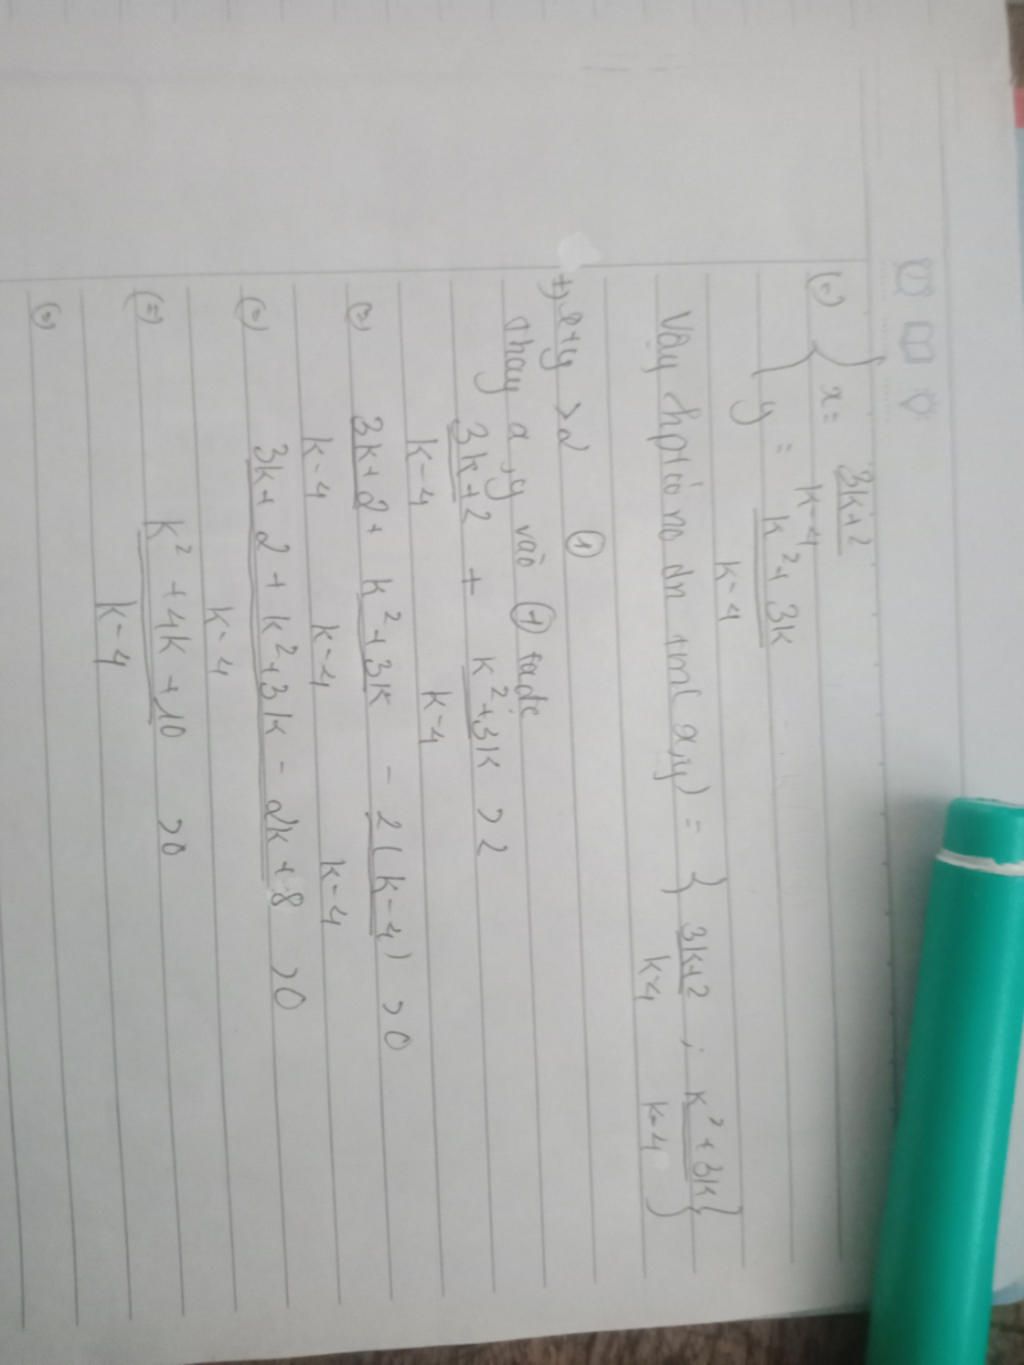 (=) { x = 3k+2 / k-4
y = k²+3k / k-4
Vậy hpt có no dn tm (x,y) = { 3k+2 / k-4 ; k²+3k / k-4 }
+) x+y >2 (1)
thay x,y vào (1) ta đc
3k+2 / k-4 + k²+3k / k-4 >2
(=) 3k+2 / k-4 + k²+3k / k-4 - 2(k-4) / k-4 >0
(=) 3k+2+k²+3k-2k+8 / k-4 >0
(=) k²+4k+10 / k-4 >0
(=)